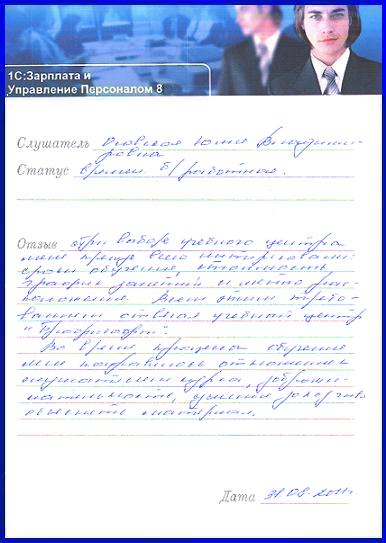 1С:Зарплата и
Управление Персоналом 8
Слушатель Юлия Владими-
ровна
Статус времен. б/работная.
Отзыв При выборе учебного центра
меня прежде всего интересовали:
сроки обучения, стоимость
график занятий и место рас-
положения. Всем этим требо-
ваниям отвечал учебный центр
"Профиторг".
Во время процесса обучения
мне понравилось отношение к
слушателям курса, доброжe-
лательность, умение доходчиво
объяснить материал.
Дата 31.08.2011г